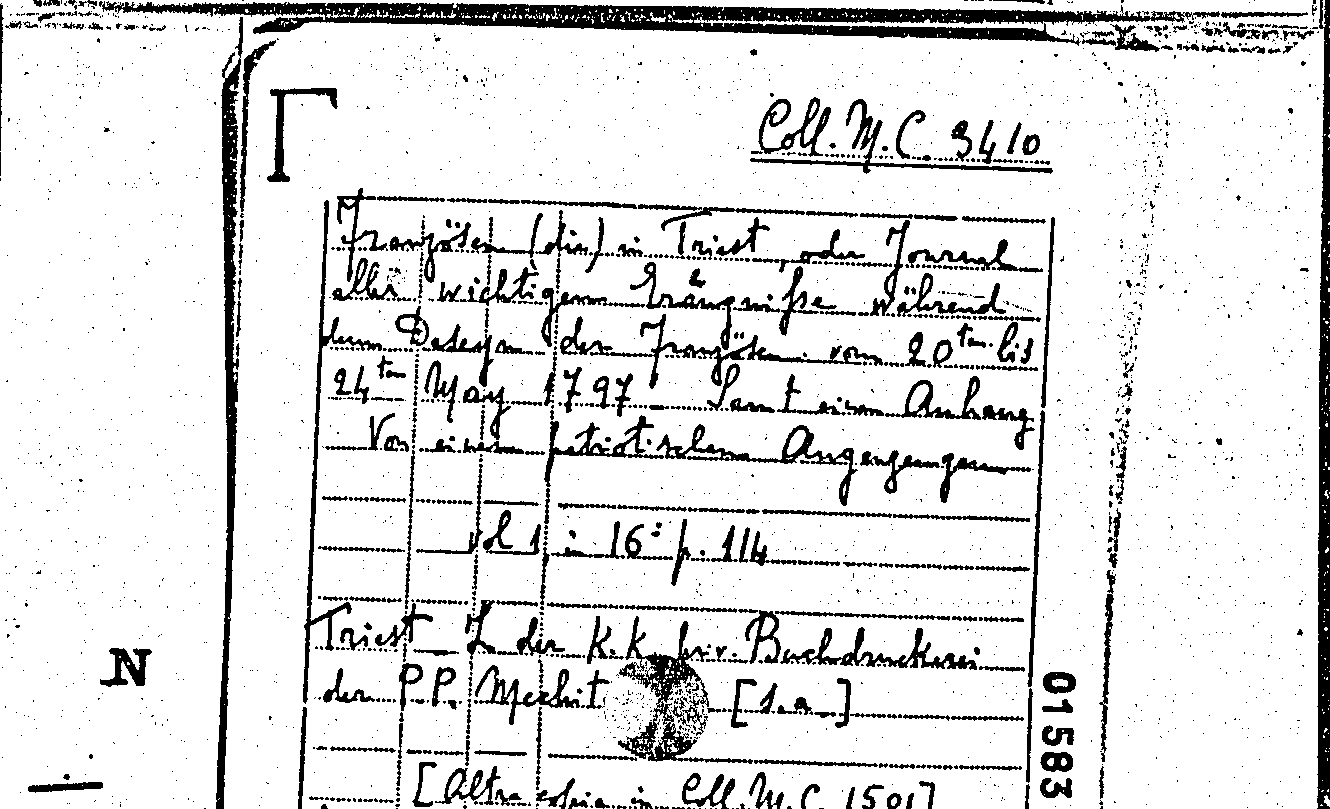 Coll. M. C. 3410
Französen (die) in Triest, oder Journal
aller wichtigern Erängniße während
dem Daseyn der Französen vom 20ten bis
24ten May 1797 Samt einem Anhang
Von einem patriotischen Augenzeugen
vol 1 in 16º p. 114
Triest I der K. K. priv. Buchdruckerei
der P. P. Mechit [s. a.]
[Altra copia in Coll. M. C. 1501]
N
01583